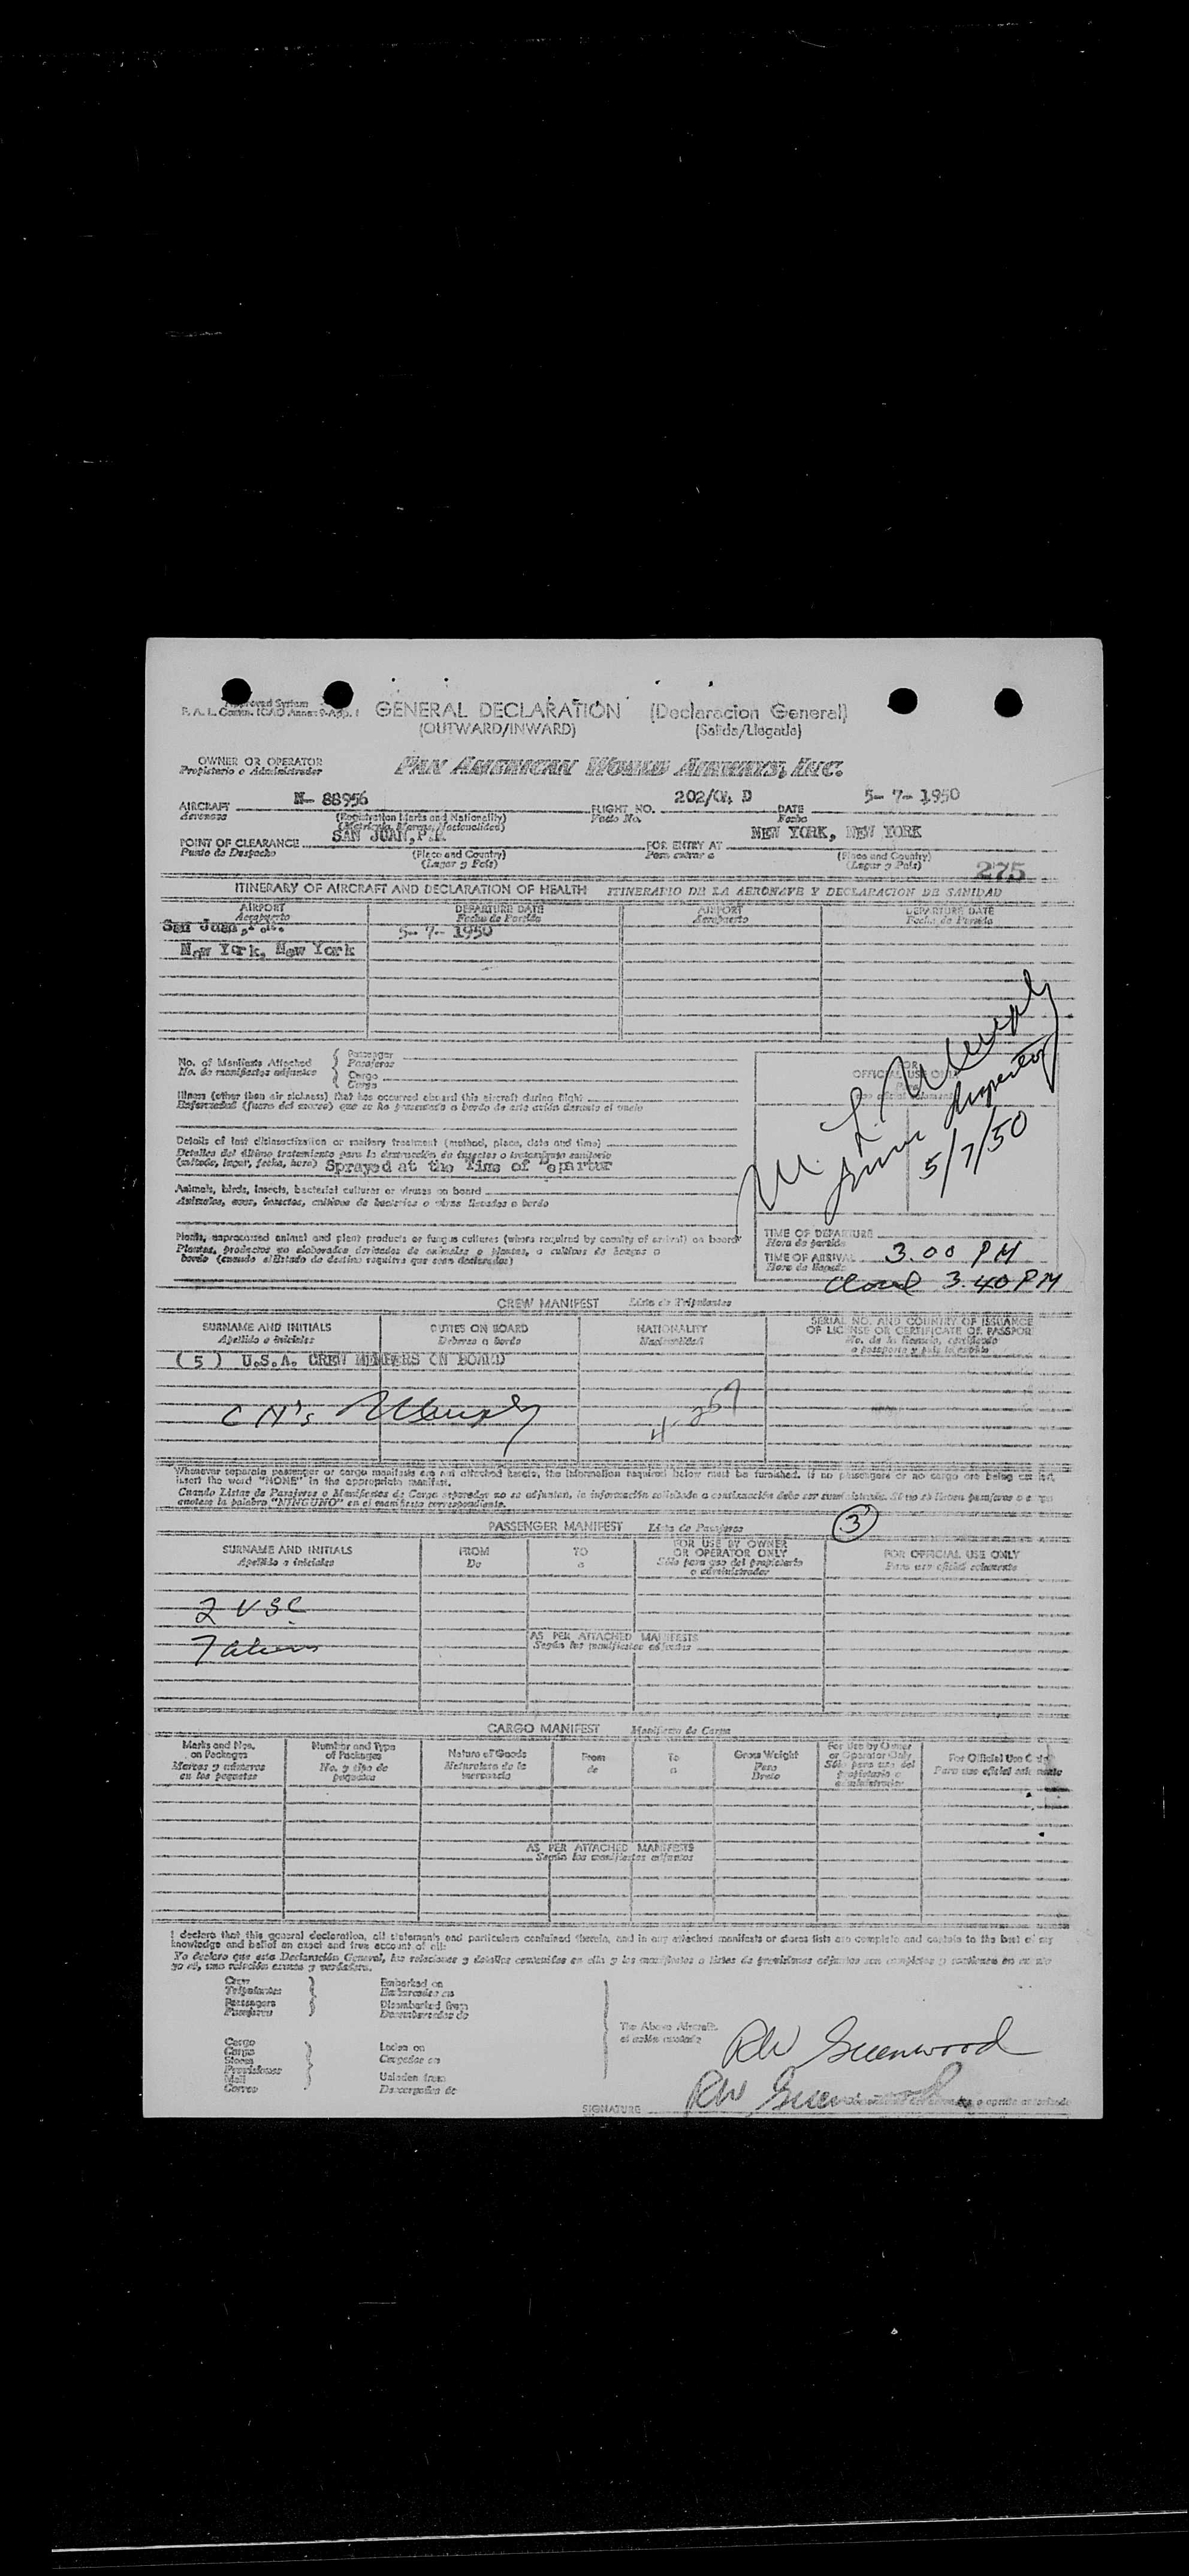 Approved System
F. A. L. Comm. ICAO Annex 9-App. 1
GENERAL DECLARATION (Declaracion General)
(OUTWARD/INWARD) (Salida/Llegada)
OWNER OR OPERATOR
Propietario o Administrador
PAN AMERICAN WORLD AIRWAYS, INC.
AIRCRAFT N- 88956 FLIGHT NO. 202/ D DATE 5- 7- 1950
Aeronave (Registration Marks and Nationality) Vuelo No. Fecha
(Matricula, Marcas, Nacionalidad)
POINT OF CLEARANCE SAN JUAN, P.R. FOR ENTRY AT NEW YORK, NEW YORK
Punto de Despacho (Place and Country) Para entrar a (Place and Country)
(Lugar y País) (Lugar y País)
275
ITINERARY OF AIRCRAFT AND DECLARATION OF HEALTH ITINERARIO DE LA AERONAVE Y DECLARACION DE SANIDAD
AIRPORT DEPARTURE DATE AIRPORT DEPARTURE DATE
Aeropuerto Fecha de Partida Aeropuerto Fecha de Partida
San Juan, P.R. 5- 7- 1950
New York, New York
No. of Manifests Attached Passenger
No. de manifiestos adjuntos Pasajeros
Cargo
Cargo
FOR
OFFICIAL USE ONLY
Para
uso oficial solamente
M. L. Murphy
Imm Inspector
5/7/50
Illness (other than air sickness) that has occurred aboard this aircraft during flight
Enfermedad (fuera del mareo) que se ha presentado a bordo de este avión durante el vuelo
Details of last disinsectization or sanitary treatment (method, place, date and time)
Detalles del último tratamiento para la destrucción de insectos o tratamiento sanitario
(método, lugar, fecha, hora) Sprayed at the Time of epartur
Animals, birds, insects, bacterial cultures or viruses on board
Animales, aves, insectos, cultivos de bacterias o virus llevados a bordo
Plants, unprocessed animal and plant products or fungus cultures (where required by country of arrival) on board
Plantas, productos no elaborados derivados de animales o plantas, o cultivos de hongos a
bordo (cuando el Estado de destino requiera que sean declarados)
TIME OF DEPARTURE
Hora de partida
TIME OF ARRIVAL 3.00 PM
Hora de llegada
Cleared 3.40 PM
CREW MANIFEST Lista de Tripulantes
SURNAME AND INITIALS DUTIES ON BOARD NATIONALITY SERIAL NO. AND COUNTRY OF ISSUANCE
OF LICENSE OR CERTIFICATE OR PASSPORT
Apellido e iniciales Deberes a bordo Nacionalidad No. de la licencia, certificado
o pasaporte y país
( 5 ) U.S.A. CREW MEMBERS ON BOARD
Murphy
Whenever separate passenger or cargo manifests are not attached hereto, the information required below must be furnished. If no passengers or no cargo are being carried,
insert the word "NONE" in the appropriate manifest.
Cuando Listas de Pasajeros o Manifiestos de Carga separados no se adjuntan, la información solicitada a continuación debe ser suministrada. Si no se llevan pasajeros o carga
anótese la palabra "NINGUNO" en el manifiesto correspondiente.
PASSENGER MANIFEST Lista de Pasajeros 3
SURNAME AND INITIALS FROM TO FOR USE BY OWNER
OR OPERATOR ONLY FOR OFFICIAL USE ONLY
Apellido e iniciales De a Sólo para uso del propietario
o administrador Para uso oficial solamente
2 USC
7 aliens
AS PER ATTACHED MANIFESTS
Según los manifiestos adjuntos
CARGO MANIFEST Manifiesto de Carga
Marks and Nos.
on Packages
Marcas y números
en los paquetes
Number and Type
of Packages
No. y tipo de
paquetes
Nature of Goods
Naturaleza de la
mercancía
From
de
To
a
Gross Weight
Peso
Bruto
For Use by Owner
or Operator Only
Sólo para uso del
propietario o
administrador
For Official Use Only
Para uso oficial solamente
AS PER ATTACHED MANIFESTS
Según los manifiestos adjuntos
I declare that this general declaration, all statements and particulars contained therein, and in any attached manifests or stores lists are complete and contain to the best of my
knowledge and belief an exact and true account of all:
Yo declaro que esta Declaración General, las relaciones y detalles contenidos en ella y los manifiestos o listas de provisiones adjuntos son completos y contienen
Crew
Tripulantes
Passengers
Pasajeros
Embarked on
Embarcados en
Disembarked from
Desembarcados de
Cargo
Carga
Stores
Provisiones
Mail
Correo
Laden on
Cargados en
Unladen from
Descargados de
The Above Aircraft.
el avión
RW Greenwood
SIGNATURE RW Greenwood